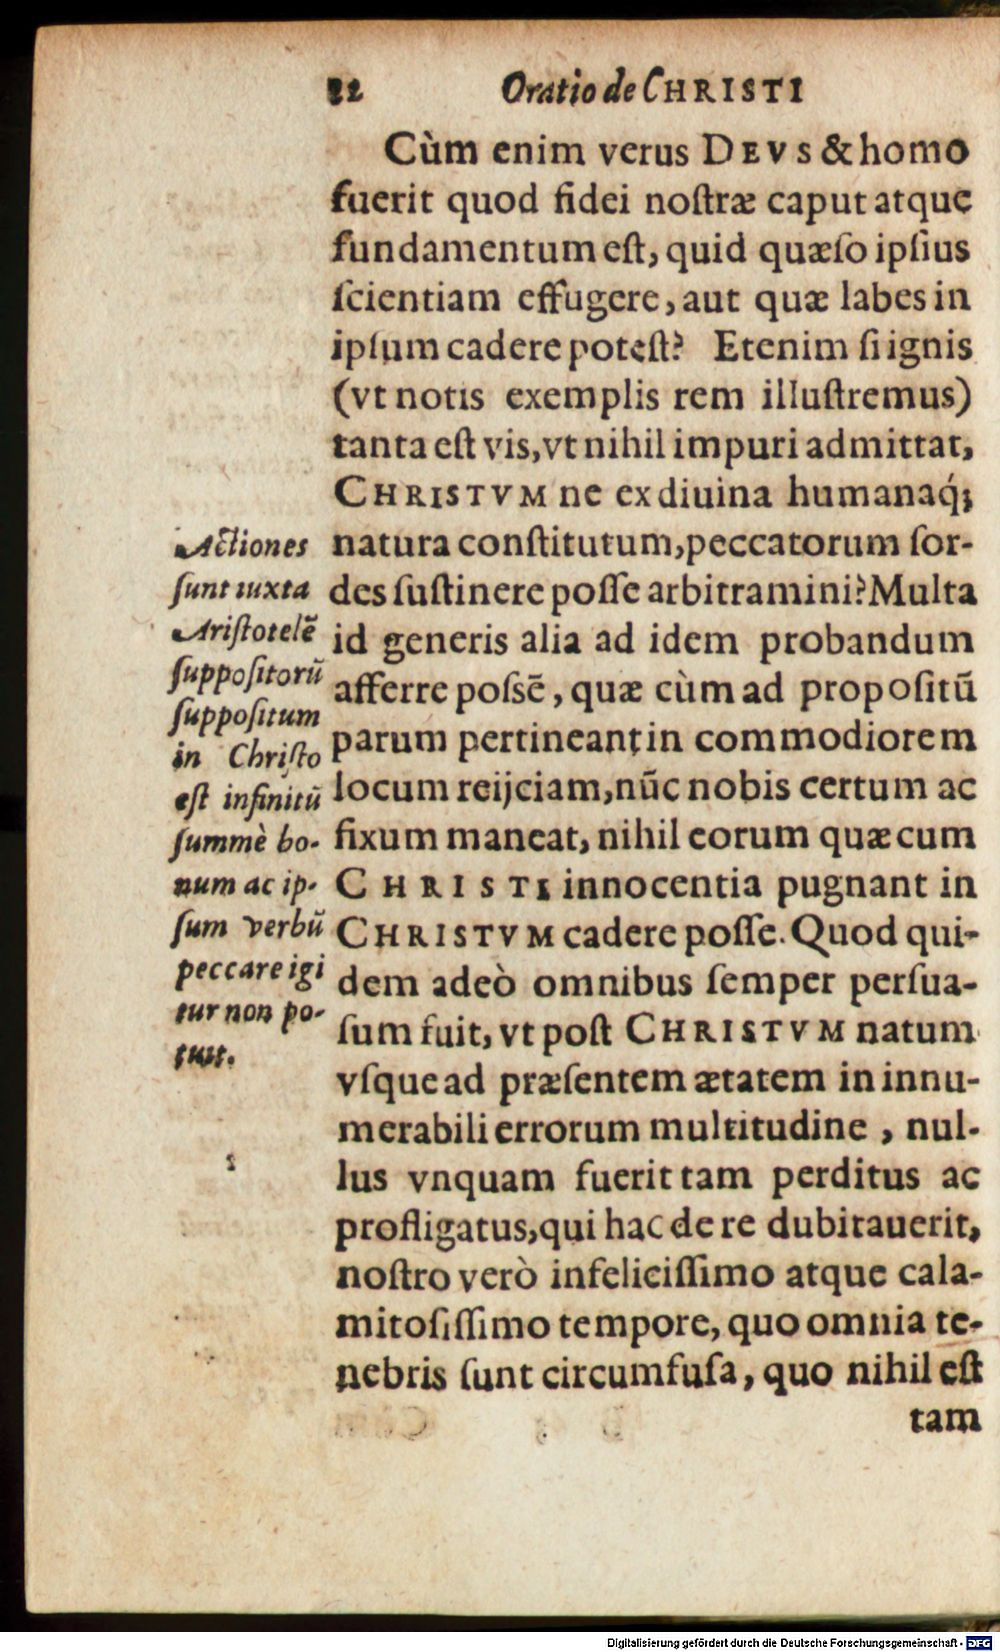 22 Oratio de CHRISTI
Cùm enim verus DEVS & homo
fuerit quod fidei noſtræ caput atque
fundamentum eſt, quid quæſo ipſius
ſcientiam effugere, aut quæ labes in
ipſum cadere poteſt? Etenim ſi ignis
(vt notis exemplis rem illuſtremus)
tanta eſt vis, vt nihil impuri admittat,
CHRISTVM ne ex diuina humanaq́;
natura conſtitutum, peccatorum ſor-
des ſuſtinere poſſe arbitramini? Multa
id generis alia ad idem probandum
afferre poſsē, quæ cùm ad propoſitū
parum pertineant in commodiorem
locum reijciam, nūc nobis certum ac
fixum maneat, nihil eorum quæ cum
CHRISTI innocentia pugnant in
CHRISTVM cadere poſſe. Quod qui-
dem adeò omnibus ſemper perſua-
ſum fuit, vt poſt CHRISTVM natum
vſque ad præſentem ætatem in innu-
merabili errorum multitudine, nul-
lus vnquam fuerit tam perditus ac
profligatus, qui hac de re dubitauerit,
noſtro verò infeliciſſimo atque cala-
mitoſiſſimo tempore, quo omnia te-
nebris ſunt circumfuſa, quo nihil eſt
tam
Actiones
ſunt iuxta
Ariſtotelē
ſuppoſitorū
ſuppoſitum
in Chriſto
eſt infinitū
ſummè bo-
num ac ip-
ſum verbū
peccare igi
tur non po-
tuit.
Digitalisierung gefördert durch die Deutsche Forschungsgemeinschaft - DFG